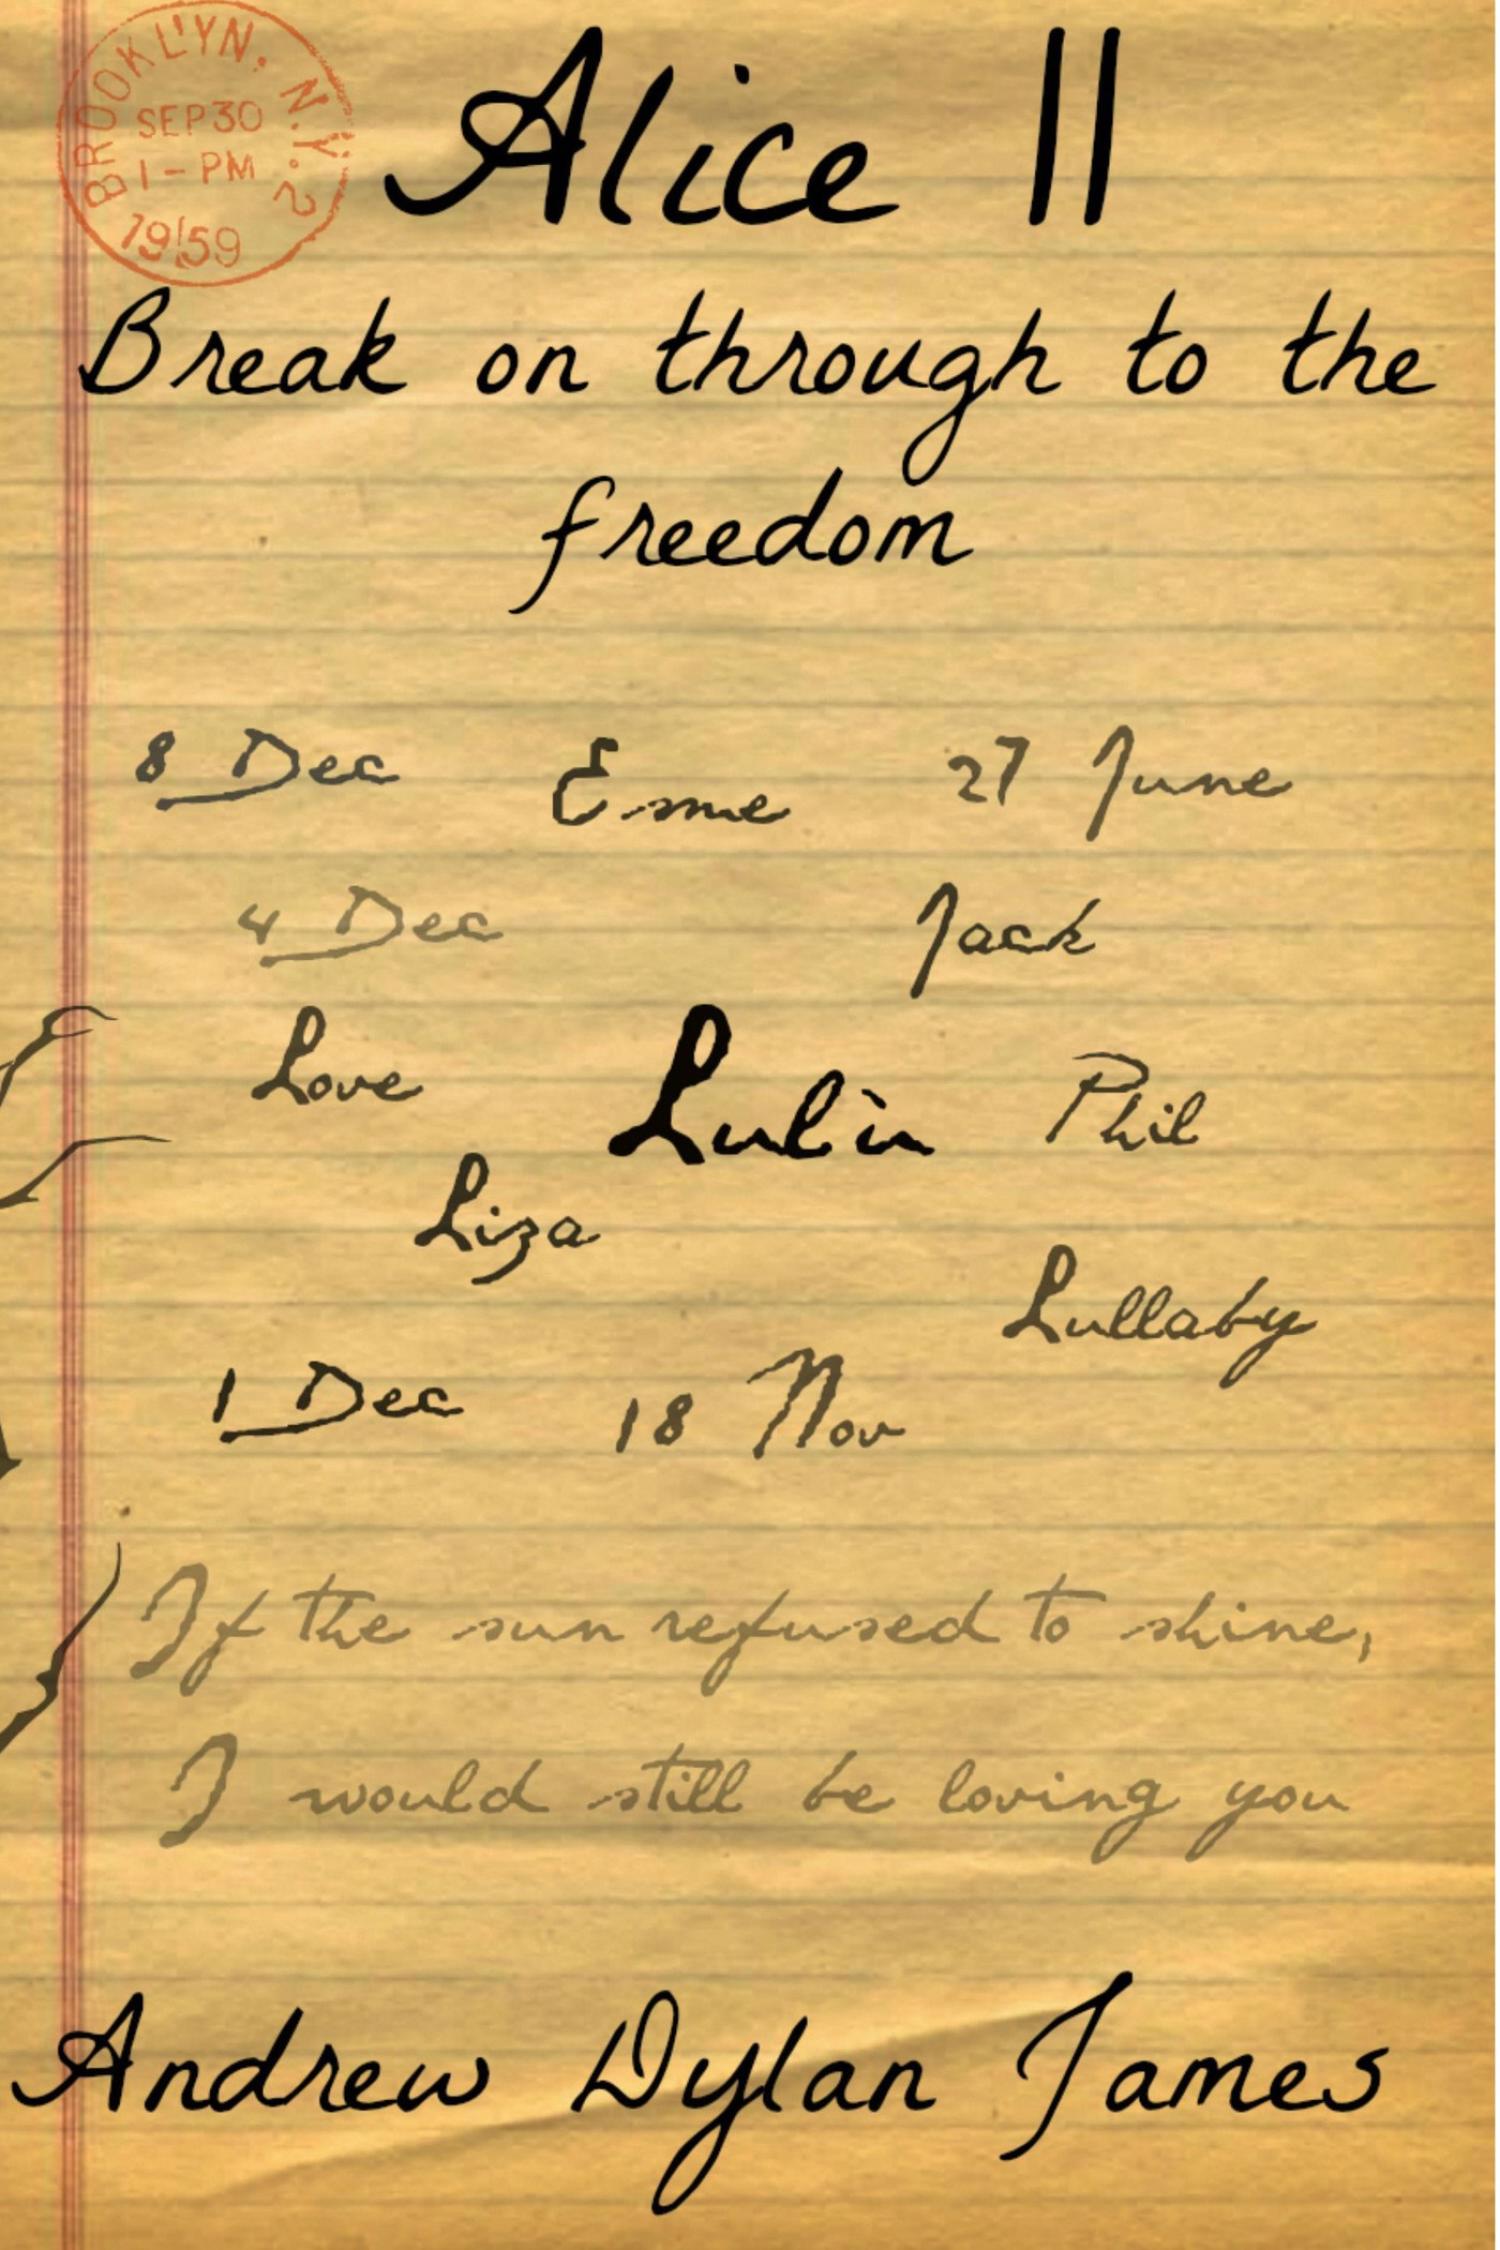 BROOKLYN, N.Y. 2
SEP 30
1-PM
1959
Alice II
Break on through to the
freedom
8 Dec Esme 27 June
4 Dec Jack
Love Lulin Phil
Liza
Lullaby
1 Dec 18 Nov
If the sun refused to shine,
I would still be loving you
Andrew Dylan James